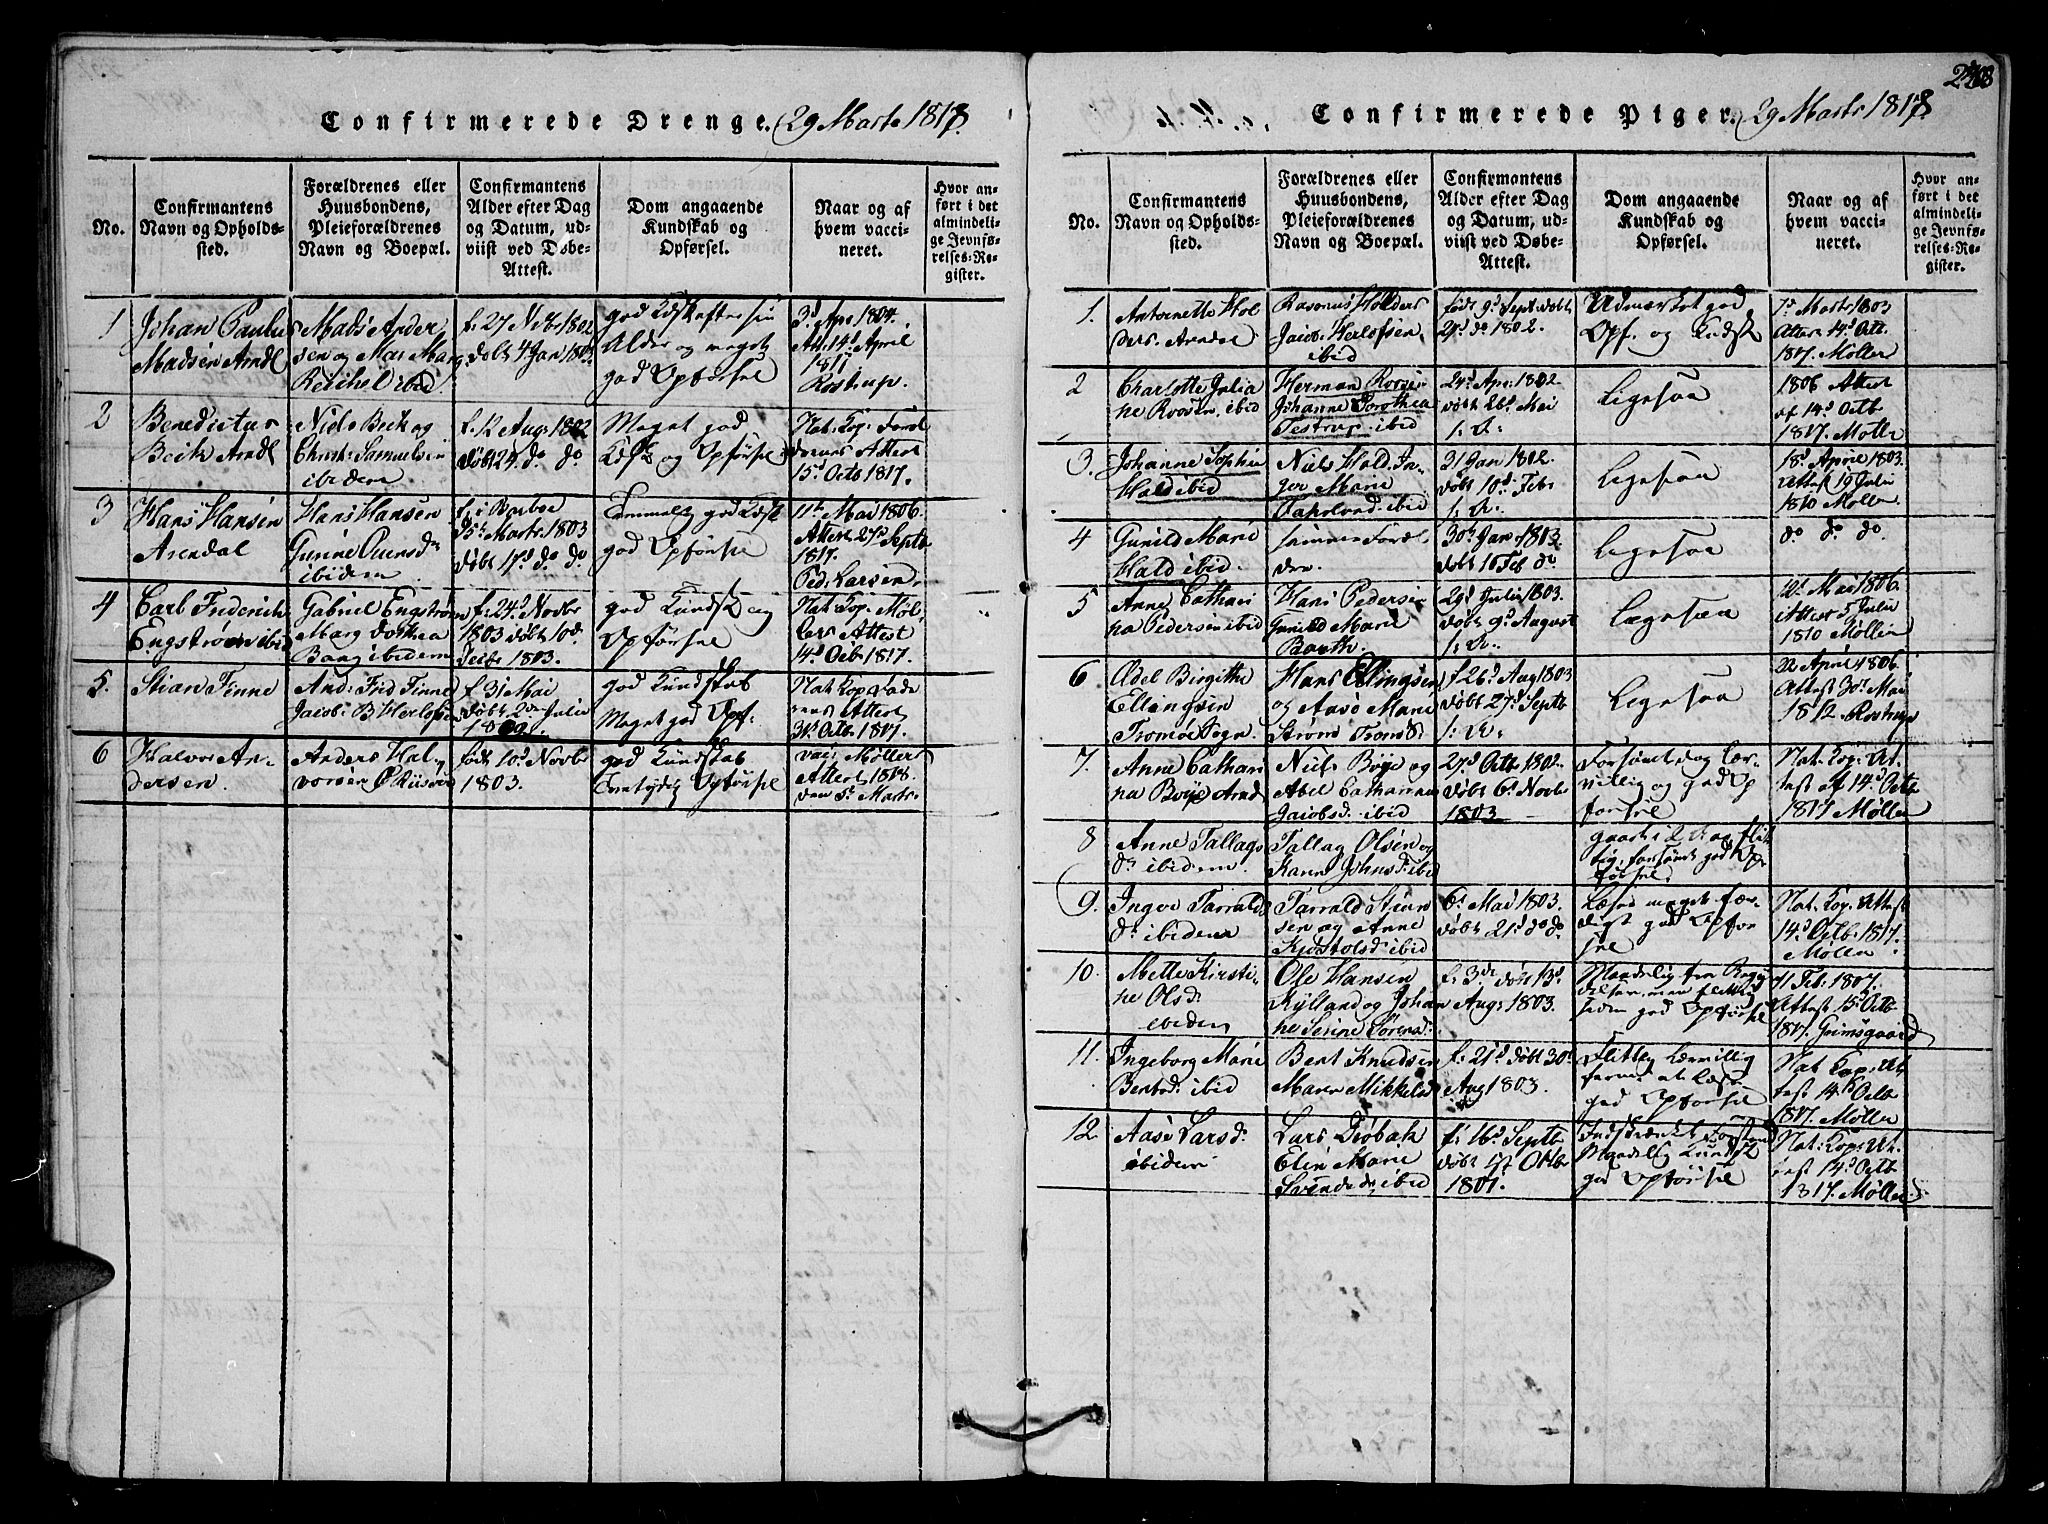 Confirmerede Drenge. 29 Marts 1818.
No.
Confirmantens Navn og Opholdssted.
Forældrenes eller Huusbondens, Pleieforældrenes Navn og Boepæl.
Confirmantens Alder efter Dag og Datum, udviist ved Døbe-Attest.
Dom angaaende Kundskab og Opførsel.
Naar og af hvem vaccineret.
Hvor anført i det almindelige Jevnførelses-Register.
1
Johan Paulus
Madsen Arndl
Mads Ander
sen og Mar. Marg
Reichel ibid
f: 27 Novbr 1802
døbt 4 Jan 1803.
god Kdsk efter sin
Alder og meget
god Opførsel
3d Apr 1804.
Att. 14d April
1817
Rostrup.
2
Benedictus
Beck Arndl
Niels Beck og
Christ: Samuels
ibidem
f. 12 Aug: 1802
døbt 24 do do
Meget god
Kdsk og Opførsel
Nat: Kop:
Attest
15d Octb 1817.
3
Hans Hansen
Arendal
Hans Hansen
Gurine
ibidem
f. i Barboe
Marts 1803
døbt 17d do do
god Opførsel
11t Mai 1806.
Attest 27d Septb
1817.
Ped: Larsen.
4
Carl Friderich
Engstrøm ibid
Gabriel Engstrøm
Marg Dorthea
Bang ibidem
f: 24d Novbr
1803 døbt 10d
1803.
god Kundsk og
Opførsel
Nat: Kop. Møl
lers Attest
14d Octb. 1817.
5.
Stian Finne
And: Frid Finne
Jacob: B Herlofsen
f. 31 Mai
døbt 2den Julii
god Kundskab
Meget god Opf:
Nat Kop
Attest
31t Octb. 1817.
6
Halvor An
dersen.
Anders Hal
vorsen
født 10d Novbr
1803.
god Kundskab
Opførsel
vac: Møllers
Attest 1818.
den 5t Marts
Confirmerede Piger. 29 Marts 1818
No.
Confirmantens Navn og Opholdssted.
Forældrenes eller Huusbondens, Pleieforældrenes Navn og Boepæl.
Confirmantens Alder efter Dag og Datum, udviist ved Døbe-Attest.
Dom angaaende Kundskab og Opførsel.
Naar og af hvem vaccineret.
Hvor anført i det almindelige Jevnførelses-Register.
1.
Antoinette Hol
ders Arndal
Rasmus Holders
Jacob: Herlofsen
ibid
født 9d Sept. døbt
29d do 1802.
Udmærket god
Opf. og Kudsk
7d Marts 1803
Attest 14d Oct.
1817. Møller
2
Charlotte Julia
ne Roosen ibid
Herman Roosen
Johanne Dorothea
Testrup ibid
24d Apr: 1802.
døbt 26d Mai
Ligesaa
1806 Attest
af 14d Octb
1817. Møller
3.
Johanne Sophie
Hald ibid
Niels Hald. In
ger Marie
ibid
31 Jan 1802.
døbt 10d Feb
Ligesaa
18d April 1803.
Attest 19 Julii
1810 Møller
4
Gunild Marie
Hald ibid.
samme Foræl
dre.
30t Jan 1803
døbt 16 Feb do
Ligesaa
do do do.
5
Anne Cathari
na Pedersen ibid
Hans Pedersen
Gunild Marie
Barth.
29d Julii 1803.
døbt 9d August
Ligesaa
12d Mai 1806.
Attest 5 Julii
1810 Møller
6
Edel Birgitha
Ellingsen
Tromøe Sogn.
Hans Ellingsen
og Aase Marie
Strøm
f 26d Aug 1803
døbt 27d Septb
Ligesaa
22 April 1806.
Attest 30t Mai
1812. Rostrup
7.
Anne Cathari
na Boye Arndl
Niels Boye og
Abel Catharina
Jacobsd: ibid
27d Octb 1802.
døbt 6d Novbr
1803
Forsømt, dog lær
villig og god Op
førsel
Nat: Kop: At
test af 14d Octb
1817 Møller
8
Anne Tallags
dr ibidem.
Tallag Olsen og
Karen Johnsd: ibid
god Op
førsel.
9.
Ingve Tarralds
dr ibidem
Tarrald
sen og Anne
Kjøstolsd: ibid
6d Mai 1803.
døbt 21d do do
Læser meget fær
digt god Opfør
sel
Nat: Kop. Attest
14d Octb. 1817.
Møller
10
Mette Kirsti
ne Olsd
ibidem
Ole Hansen
Kylland og Johan
ne Serine Sørensd.
f. 3de døbt 13d
Aug: 1803.
Maadelig fra
god Opførsel
11 Feb: 1807.
Attest 15d Octb
1817. Grimsgaard
11.
Ingeborg Marie
Berntsd: ibid
Bernt Knudsen
Maren Mikkelsd
f: 21d døbt 30d
Aug 1803.
Flittig lærvillig
at læse
god Opførsel
Nat Kop: At
test 14d Octb
1817. Møller
12
Aase Larsd.
ibidem
Lars Drøbak
Elen Marie
Svendsdr ibid
f: 16d Septb
døbt 17 Octbr
1801.
Indskrænket Forstand
Maadelig Kundsk
god Opførsel
Nat: Kop: At
test 14d Octb
1817. Møller.